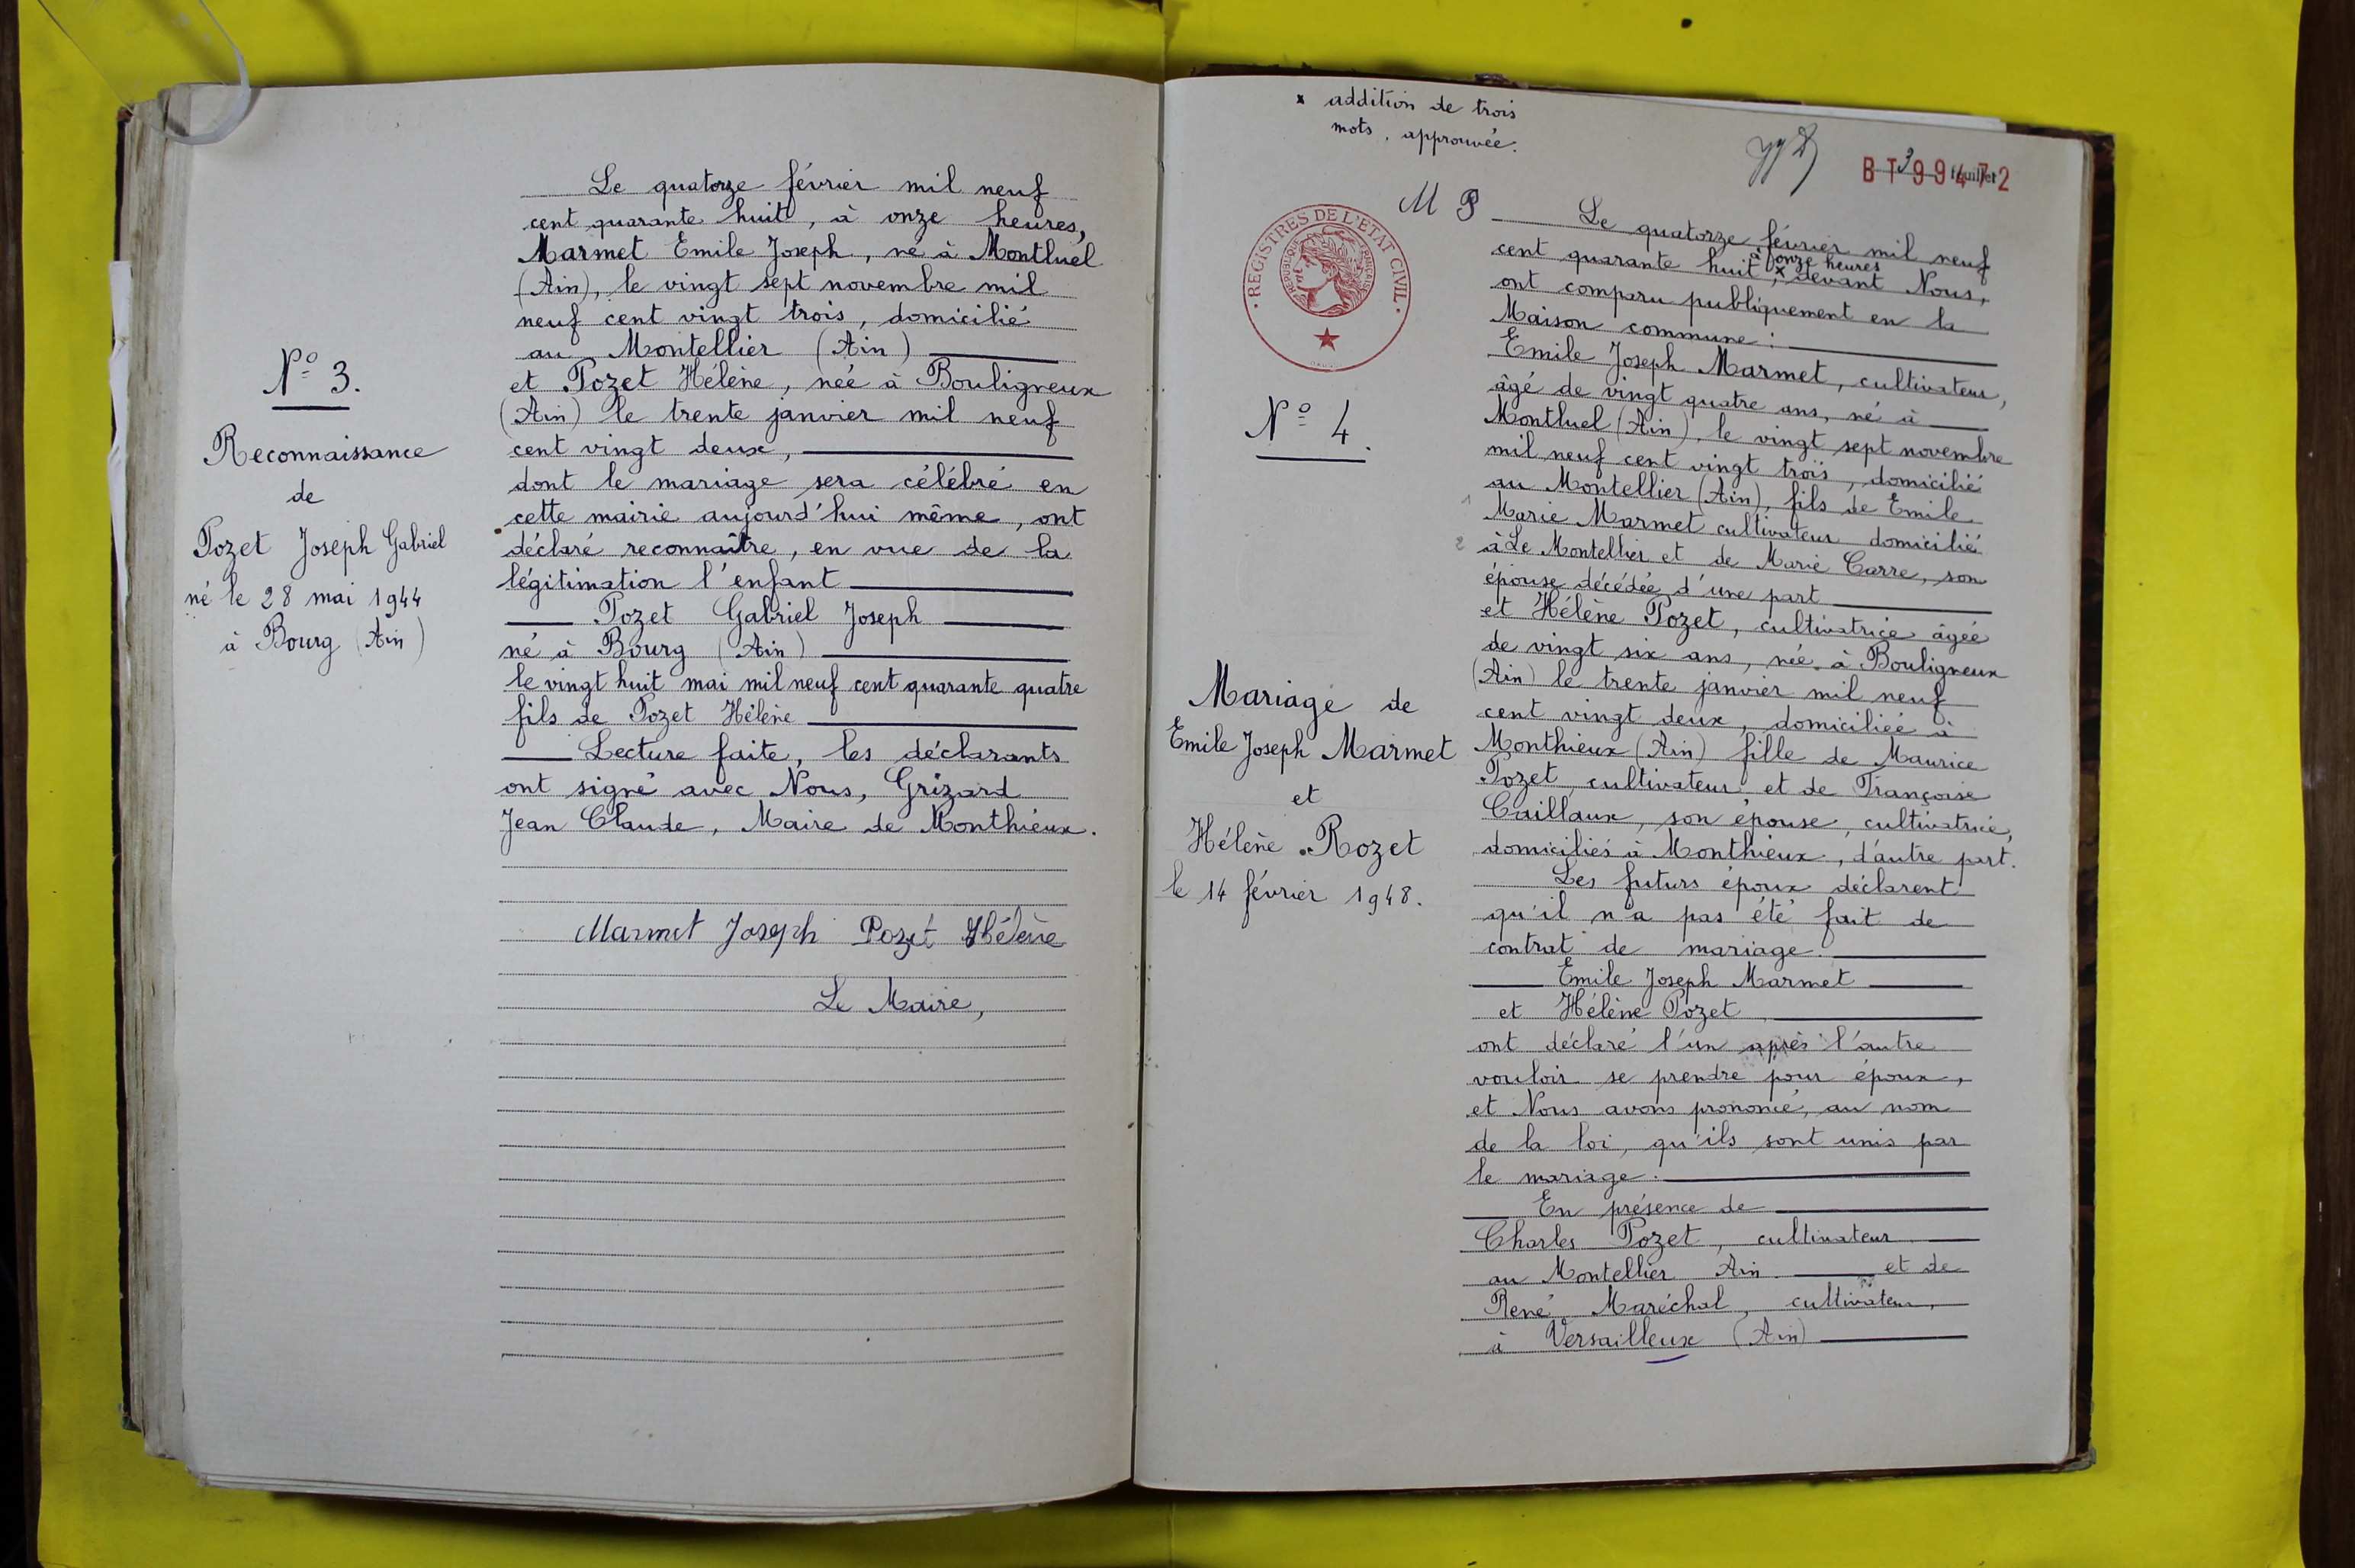 Le quatorze février mil neuf
cent quarante huit, à onze heures,
Marmet Emile Joseph, né à Montluel
(Ain), le vingt sept novembre mil
neuf cent vingt trois, domicilié
au Montellier (Ain)
et Pozet Hélène, née à Bouligneux
(Ain) le trente janvier mil neuf
cent vingt deux,
dont le mariage sera célébré en
cette mairie aujourd'hui même, ont
déclaré reconnaître, en vue de la
légitimation l'enfant
Pozet Gabriel Joseph
né à Bourg (Ain)
le vingt huit mai mil neuf cent quarante quatre
fils de Pozet Hélène
Lecture faite, les déclarants
ont signé avec Nous, Grizard
Jean Claude, Maire de Monthieux.
Marmet Joseph Pozet Hélène
Le Maire,
N° 3.
Reconnaissance
de
Pozet Joseph Gabriel
né le 28 mai 1944
à Bourg (Ain)
x addition de trois
mots, approuvée.
3
feuillet
BT 99472
M P
REGISTRES DE L'ETAT CIVIL
REPUBLIQUE FRANÇAISE
N° 4.
Mariage de
Emile Joseph Marmet
et
Hélène Rozet
le 14 février 1948.
Le quatorze février mil neuf
à onze heures
cent quarante huit, x devant Nous,
ont comparu publiquement en la
Maison commune :
Emile Joseph Marmet, cultivateur,
âgé de vingt quatre ans, né à
Montluel (Ain), le vingt sept novembre
mil neuf cent vingt trois, domicilié
au Montellier (Ain), fils de Emile
1 Marie Marmet cultivateur domicilié
2 à Le Montellier et de Marie Carre, son
épouse décédée, d'une part
et Hélène Pozet, cultivatrice âgée
de vingt six ans, née à Bouligneux
(Ain) le trente janvier mil neuf
cent vingt deux, domiciliée à
Monthieux (Ain) fille de Maurice
Pozet, cultivateur et de Françoise
Caillaux, son épouse, cultivatrice,
domiciliés à Monthieux, d'autre part.
Les futurs époux déclarent
qu'il n'a pas été fait de
contrat de mariage.
Emile Joseph Marmet
et Hélène Pozet
ont déclaré l'un après l'autre
vouloir se prendre pour époux,
et Nous avons prononcé, au nom
de la loi, qu'ils sont unis par
le mariage.
En présence de
Charles Pozet, cultivateur
au Montellier Ain et de
René Maréchal, cultivateur,
à Versailleux (Ain)